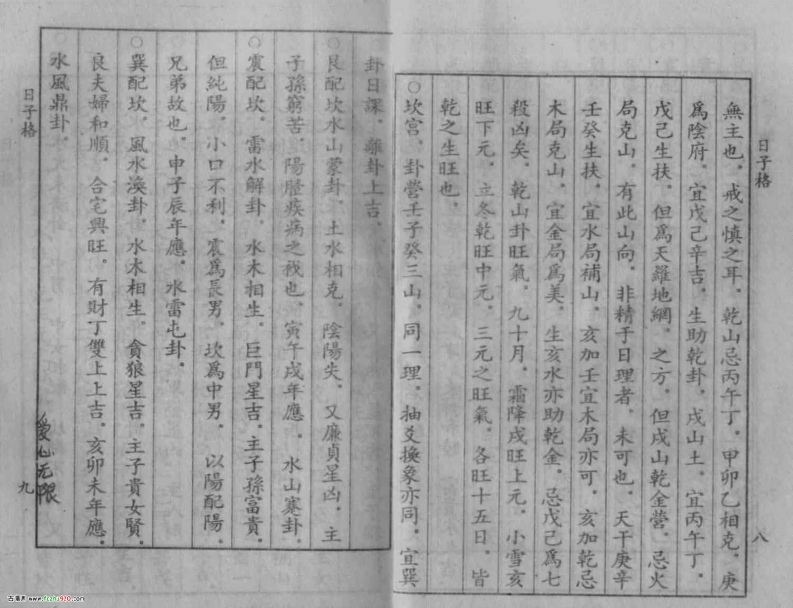 日子格
無主也．戒之慎之耳．乾山忌丙午丁．甲卯乙相克．庚
爲陰府．宜戊己辛吉．生助乾卦．戌山土．宜丙午丁．
戊己生扶．但爲天羅地網．之方．但戌山乾金營．忌火
局克山．有此山向．非精于日理者．未可也．天干庚辛
壬癸生扶．宜水局補山．亥加壬宜木局亦可．亥加乾忌
木局克山．宜金局爲美．生亥水亦助乾金．忌戊己爲七
殺凶矣．乾山卦旺氣．九十月．霜降戌旺上元．小雪亥
旺下元．立冬乾旺中元．三元之旺氣．各旺十五日．皆
乾之生旺也．
○坎宫．卦營壬子癸三山．同一理．抽爻換象亦同．宜巽
八
卦日課．離卦上吉．
○艮配坎水山蒙卦．土水相克．陰陽失．又廉貞星凶．主
子孫窮苦．陽膯疾病之禍也．寅午戌年應．水山蹇卦．
○震配坎．雷水解卦．水木相生．巨門星吉．主子孫富貴．
但純陽．小口不利．震爲長男．坎爲中男．以陽配陽．
兄弟故也．申子辰年應．水雷屯卦．
○巽配坎．風水渙卦．水木相生．貪狼星吉．主子貴女賢．
良夫婦和順．合宅興旺．有財丁雙上上吉．亥卯未年應．
水風鼎卦．
日子格
九
爱心无限